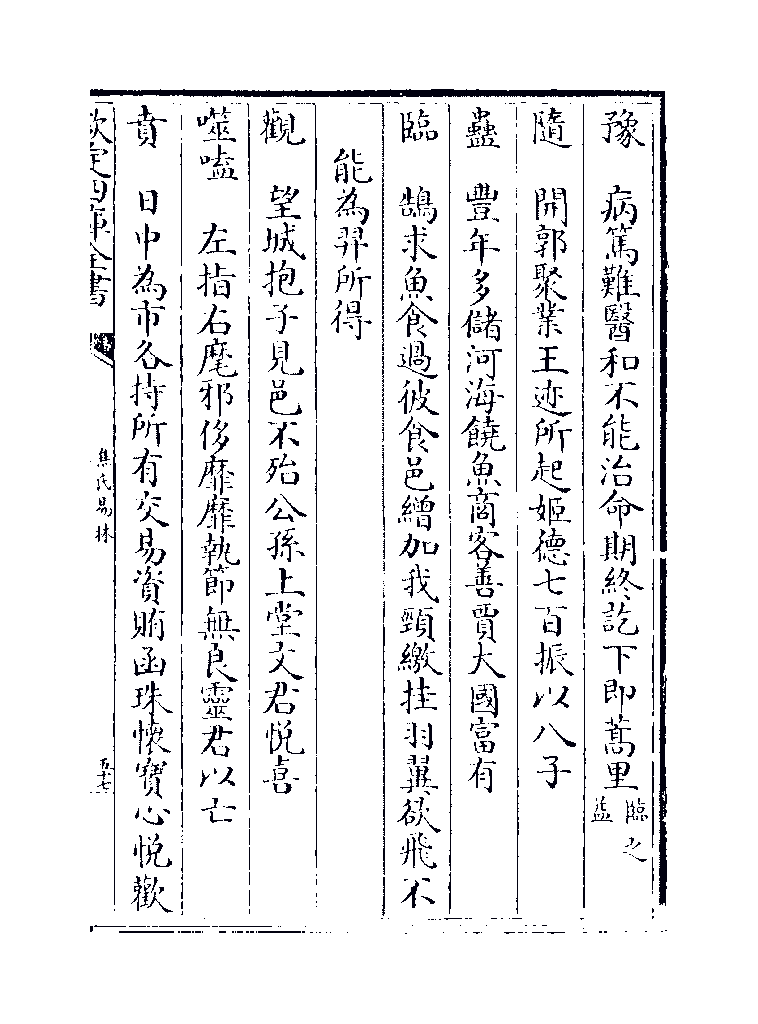 豫　病篤難醫和不能治命期終訖下即蒿里臨之益
隨　開郭聚業王迹所起姬德七百振以八子
蠱　豐年多儲河海饒魚商客善賈大國富有
臨　鵠求魚食過彼食邑繒加我頸繳挂羽翼欲飛不
能為羿所得
觀　望城抱子見邑不殆公孫上堂文君悦喜
噬嗑　左指右麾邪侈靡靡執節無良靈君以亡
賁　日中為市各持所有交易資賄函珠懷寶心悦歡
欽定四庫全書
焦氏易林
五十七